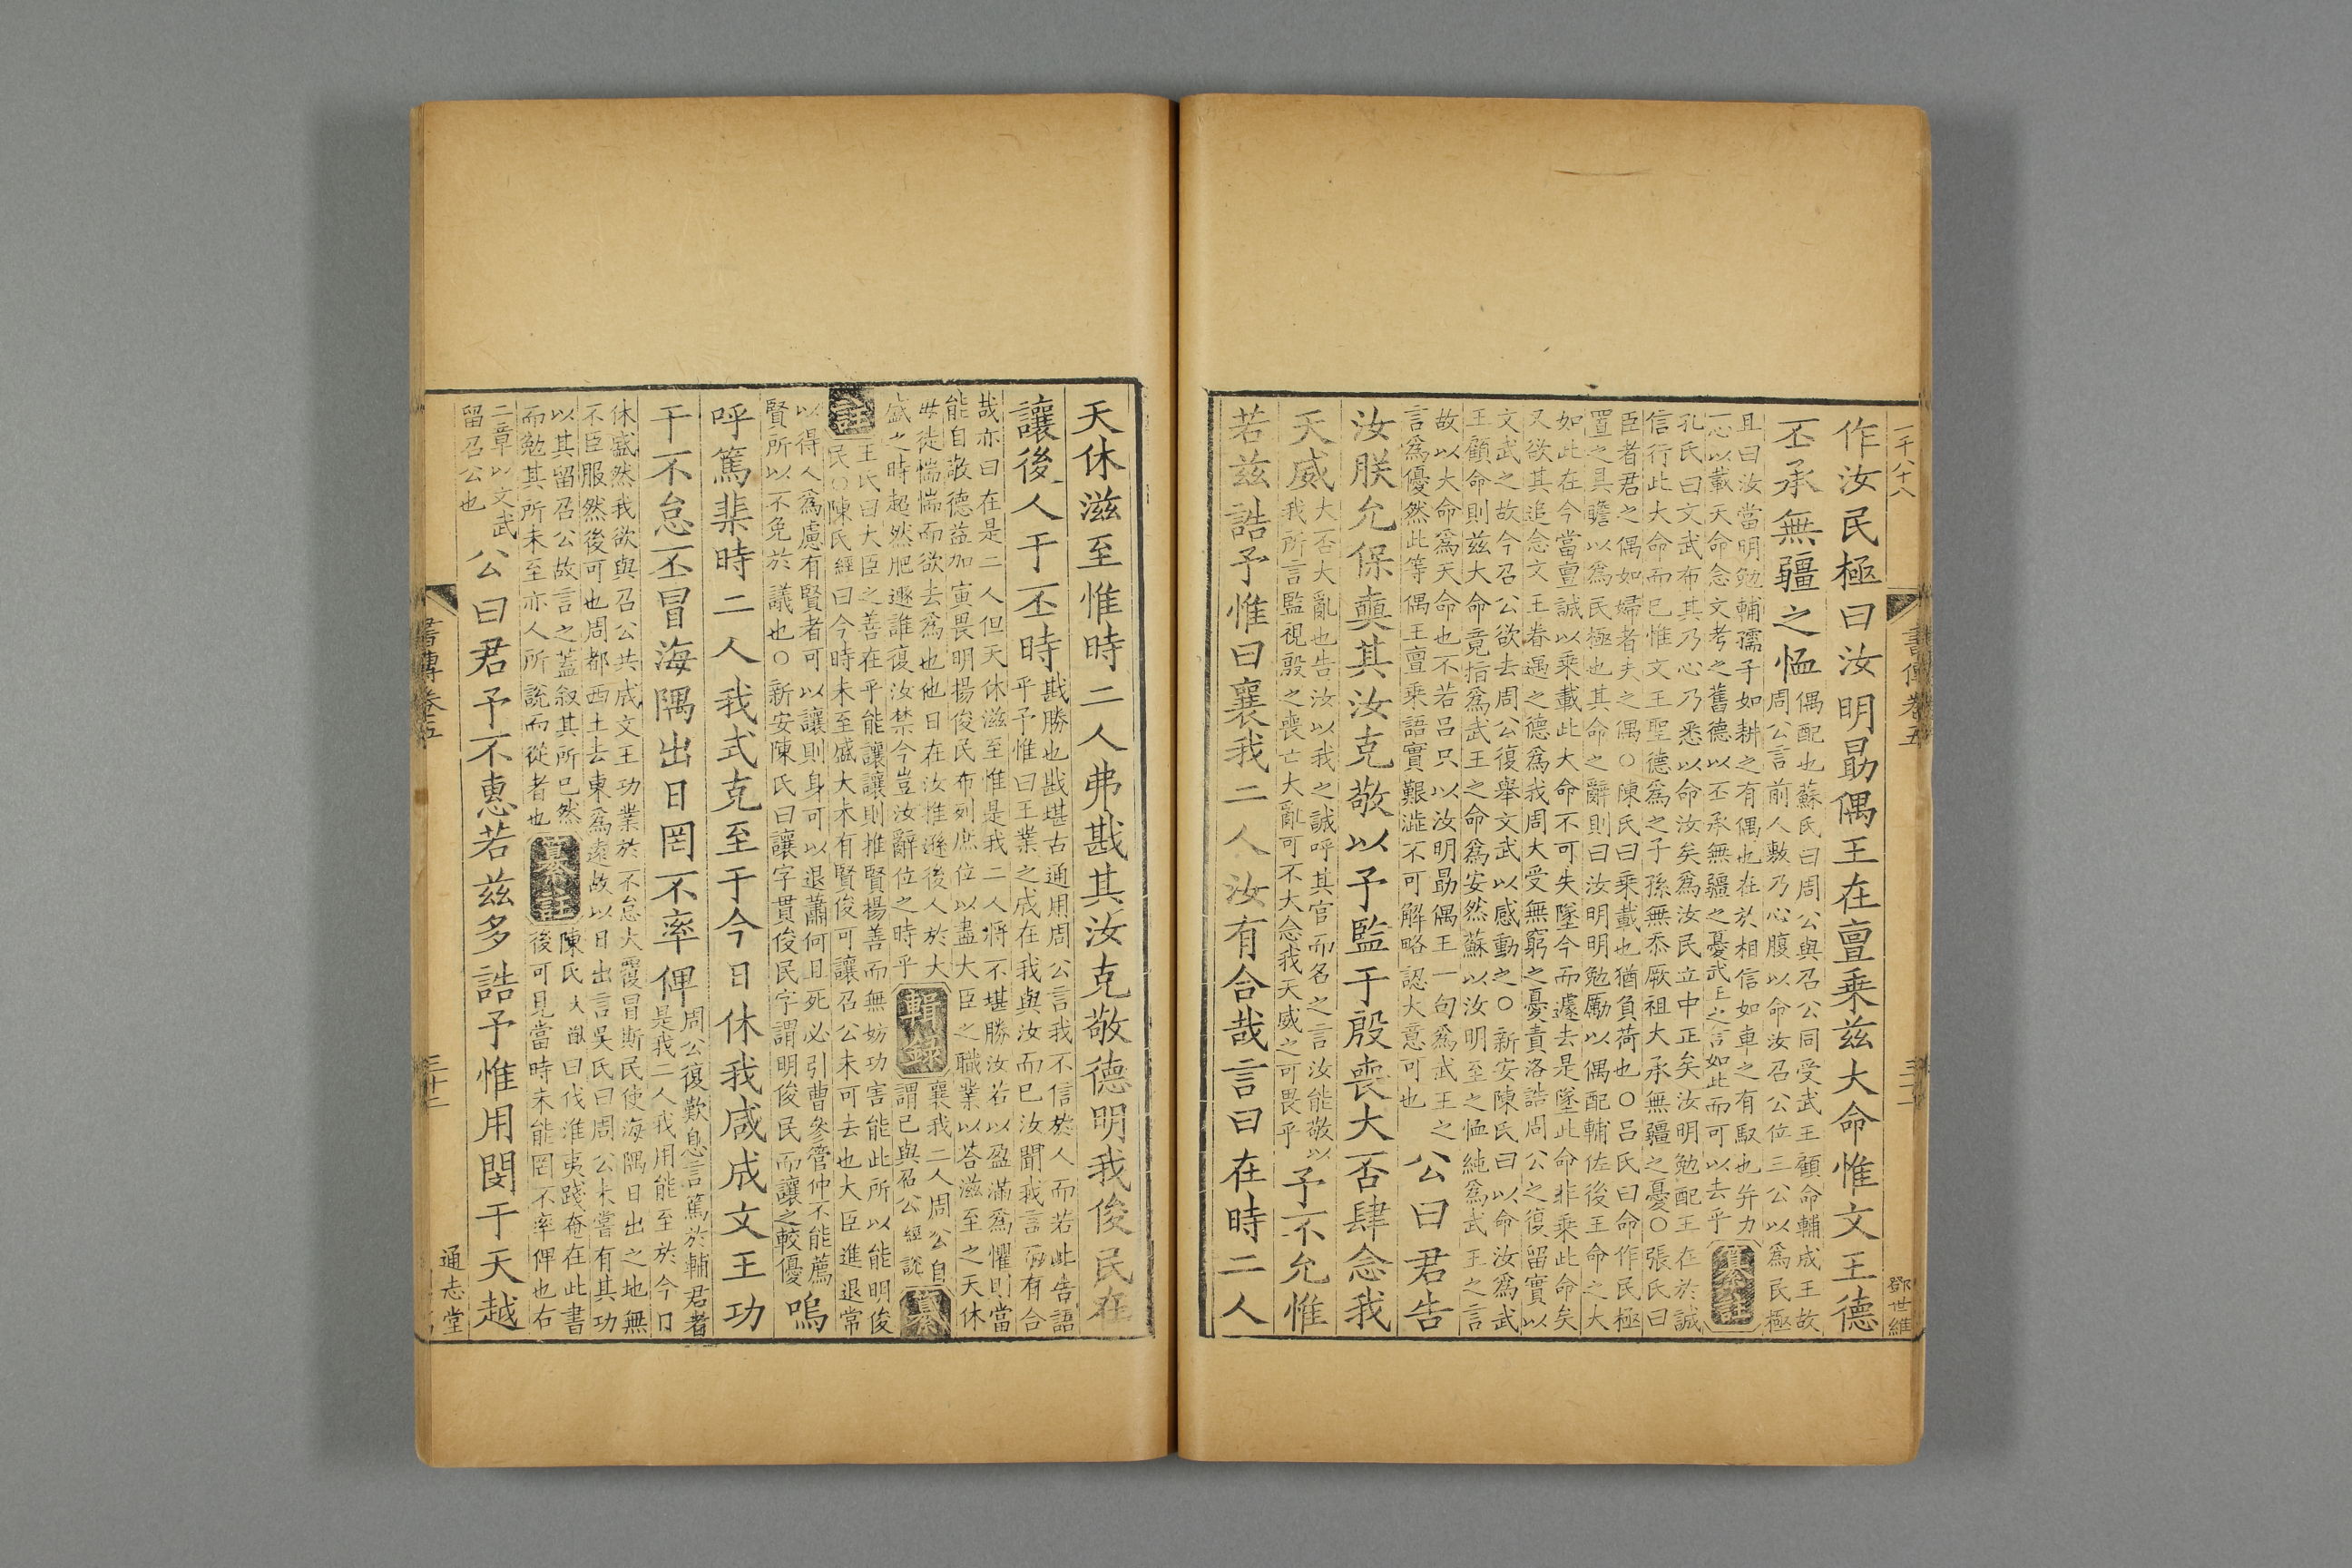 一千八十八
書傳卷五
鄧世維
作汝民極曰汝明勗偶王在亶乗兹大命惟文王德
丕承無疆之恤
偶配也蘇氏曰周公與召公同受武王顧命輔成王故
周公言前人敷乃心腹以命汝召公位三公以爲民極
且曰汝當明勉輔孺子如耕之有偶也在於相信如車之有馭也并力
一心以載天命念文考之舊德以丕承無疆之憂武王之言如此而可以去乎
纂註
孔氏曰文武布其乃心乃悉以命汝矣爲汝民立中正矣汝明勉配王在於誠
信行此大命而已惟文王聖德爲之子孫無忝厥祖大承無疆之憂○張氏曰
臣者君之偶如婦者夫之偶○陳氏曰乗載也猶負荷也○呂氏曰命作民極
置之具瞻以爲民極也其命之辭則曰汝明明勉勵以偶配輔佐後王命之大
如此在今當亶誠以乗載此大命不可失墜今而遽去是墜此命非乗此命矣
又欲其追念文王眷遇之德爲我周大受無窮之憂責洛誥周公之復留實以
文武之故今召公欲去周公復舉文武以感動之○新安陳氏曰以命汝爲武
王顧命則兹大命竟指爲武王之命爲安然蘇以汝明至之恤純爲武王之言
故以大命爲天命也不若呂只以汝明勗偶王一句爲武王之
言爲優然此等偶王亶乗語實艱澁不可解略認大意可也
公曰君告
汝朕允保奭其汝克敬以予監于殷喪大否肆念我
天威
大否大亂也告汝以我之誠呼其官而名之言汝能敬以
我所言監視殷之喪亡大亂可不大念我天威之可畏乎
予不允惟
若兹誥予惟曰襄我二人汝有合哉言曰在時二人
天休滋至惟時二人弗戡其汝克敬德明我俊民在
讓後人于丕時
戡勝也戡堪古通用周公言我不信於人而若此告語
乎予惟曰王業之成在我與汝而已汝聞我言而有合
哉亦曰在是二人但天休滋至惟是我二人將不堪勝汝若以盈滿爲懼則當
能自敬德益加寅畏明揚俊民布列庶位以盡大臣之職業以荅滋至之天休
毋徒惴惴而欲去爲也他日在汝推遜後人於大
盛之時超然肥遯誰復汝禁今豈汝辭位之時乎
輯録
襄我二人周公自
謂已與召公經說
纂
註
王氏曰大臣之善在乎能讓讓則推賢揚善而無妨功害能此所以能明俊
民○陳氏經曰今時未至盛大未有賢俊可讓召公未可去也大臣進退常
以得人爲慮有賢者可以讓則身可以退蕭何且死必引曹參管仲不能薦
賢所以不免於議也○新安陳氏曰讓字貫俊民字謂明俊民而讓之較優
嗚
呼篤棐時二人我式克至于今日休我咸成文王功
于不怠丕冒海隅出日罔不率俾
周公復歎息言篤於輔君者
是我二人我用能至於今日
休盛然我欲與召公共成文王功業於不怠大覆冒斯民使海隅日出之地無
不臣服然後可也周都西土去東爲遠故以日出言吳氏曰周公未嘗有其功
以其留召公故言之蓋叙其所已然
而勉其所未至亦人所說而從者也
纂註
陳氏大猷曰伐淮夷踐奄在此書
後可見當時未能罔不率俾也右
二章以文武
留召公也
公曰君予不惠若兹多誥予惟用閔于天越
書傳卷五
三十二
通志堂